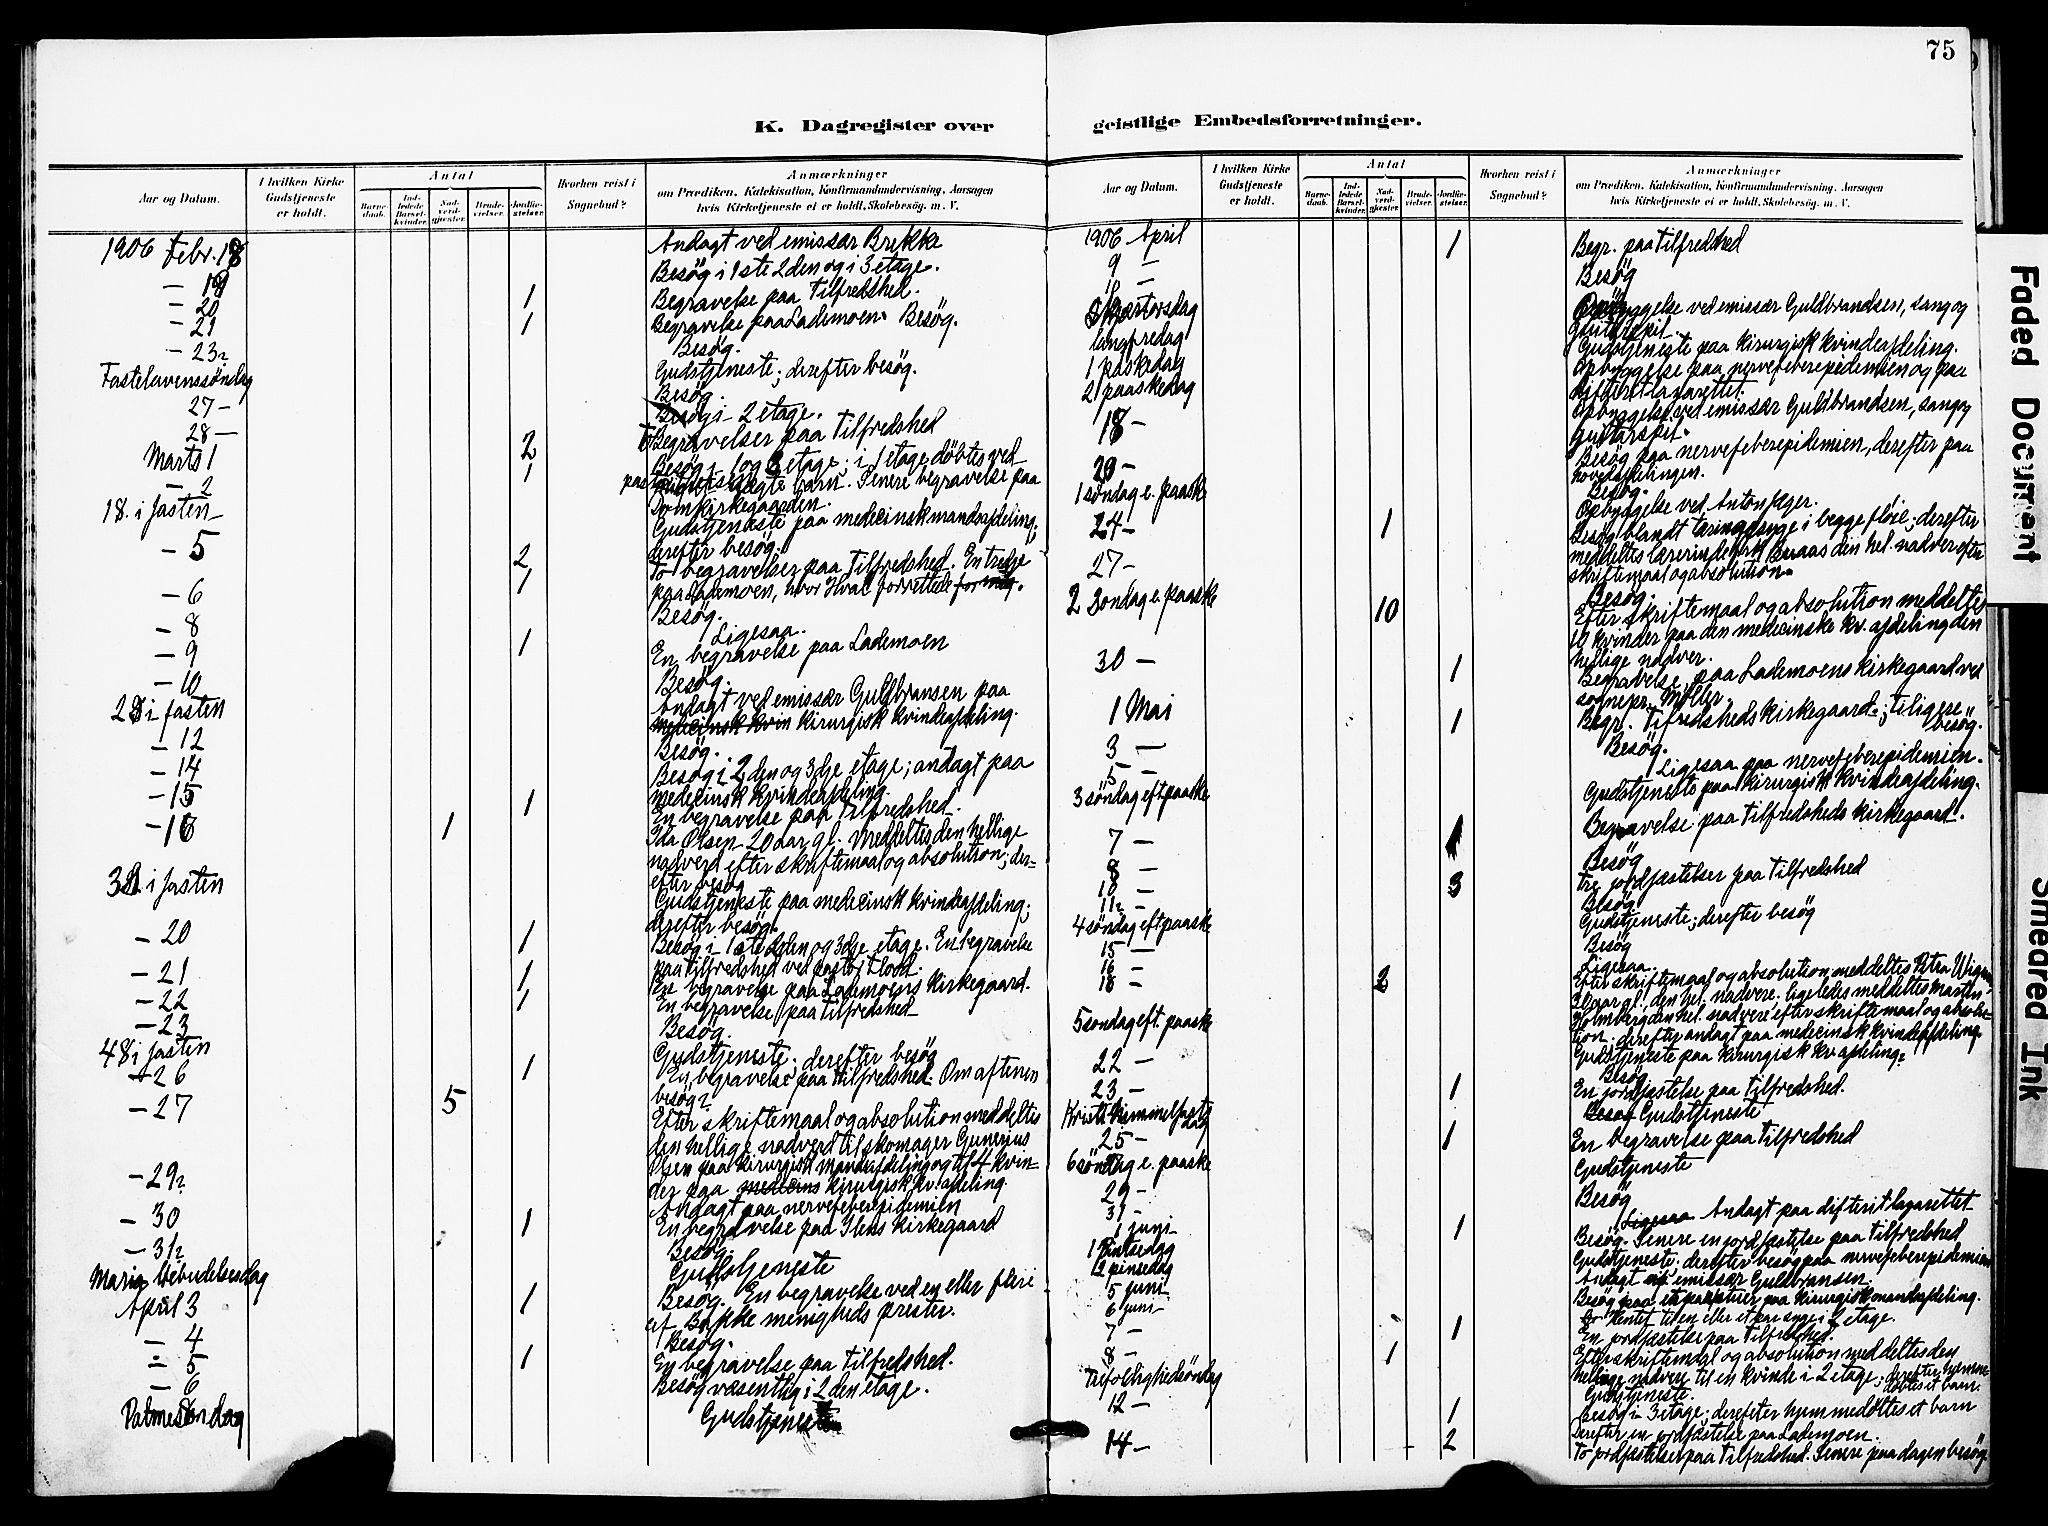 75
K. Dagregister over
geistlige Embedsforretninger.
Aar og Datum.
I hvilken Kirke Gudstjeneste er holdt.
Antal
Barne-daab.
Ind-ledede Barsel-kvinder.
Nad-verd-gjester.
Brude-vielser.
Jordfæ-stelser.
Hvorhen reist i Sognebud?
Anmærkninger
om Prædiken, Katekisation, Konfirmandundervisning, Aarsagen
hvis Kirketjeneste ei er holdt, Skolebesøg. m. V.
1906 Febr. 18 Andagt ved emissær Brekke
Besög i 1ste 2den og i 3 etage.
- 19
- 20 1 Begravelse paa Tilfredshed.
- 21 1 Begravelse paa Lademoen. Besög.
- 23 Besög.
Fastelavenssöndag Gudstjeneste; derefter besög.
Besög.
27 - Besög i 2 etage.
28 - 2 To Begravelser paa Tilfredshed
Marts 1 Besög i 1 og etage; i 1 etage döbtes ved
- 2 1 barn. Senere begravelse paa
Domkirkegaarden.
1 S. i fasten Gudstjeneste paa medicinsk mandsafdeling;
derefter besög.
- 5 2 To begravelser paa Tilfredshed. En tredje
1 paa Lademoen, hvor Hval forrettede for mig.
- 6 Besög.
- 8 Ligesaa.
- 9 1 En begravelse paa Lademoen
- 10 Besög.
2 S i fasten Andagt ved emissær Guldbransen paa
medicinsk kvin kirurgisk kvindeafdeling.
- 12 Besög.
- 14 Besög i 2den og 3dje etage; andagt paa
medicinsk kvindeafdeling.
- 15 1 En begravelse paa Tilfredshed.
- 16 1 Ida Olsen 20 aar gl. meddeltes den hellige
nadverd efter skriftemaal og absolution; der-
efter besög
3 S i fasten Gudstjeneste paa medicinsk kvindeafdeling;
derefter besög.
- 20 1 Besög i 1ste 2den og 3dje etage. En begravelse
paa Tilfredshed ved pastor Flood.
- 21 1 En begravelse paa Lademoens kirkegaard.
- 22 1 En begravelse paa Tilfredshed
- 23 Besög.
4 S i fasten Gudstjeneste; derefter besög
- 26 1 En begravelse paa Tilfredshed. Om aftenen
besög.
- 27 5 Efter skriftemaal og absolution meddeltes
den hellige nadverd til skomager Gunerius
Olsen paa kirurgisk mandsafdeling og til 4 kvin-
der paa medicins kirurgisk kv. afdeling.
- 29 Andagt paa nervefeberepidemien
- 30 1 En begravelse paa Ilens kirkegaard
- 31 Besög.
Mariæ bebudelsesdag Gudstjeneste
April 3 1 Besög. En begravelse ved en eller flere
af Bakke menigheds prester.
- 4 Besög.
- 5 1 En begravelse paa Tilfredshed.
- 6 Besög væsentlig i 2den etage.
Palmesöndag Gudstjeneste
Aar og Datum.
I hvilken Kirke Gudstjeneste er holdt.
Antal
Barne-daab.
Ind-ledede Barsel-kvinder.
Nad-verd-gjester.
Brude-vielser.
Jordfæ-stelser.
Hvorhen reist i Sognebud?
Anmærkninger
om Prædiken, Katekisation, Konfirmandundervisning, Aarsagen
hvis Kirketjeneste ei er holdt, Skolebesøg. m. V.
1906 April
9 - 1 Begr. paa Tilfredshed
Besög
Skjærtorsdag Opbyggelse ved emissær Guldbrandsen, sang og
guitarspil.
langfredag Gudstjeneste paa kirurgisk kvindeafdeling.
1 paskedag Opbyggelse paa nervefeberepidemien og paa
difteritlazarettet.
2 paaskedag Opbyggelse ved emissær Guldbrandsen, sang og
guitarspil.
18 - Besög paa nervefeberepidemien, derefter paa
hovedafdelingen.
20 - Besög.
1 söndag e. paaske Opbyggelse ved Anton Jæger.
24 - 1 Besög blandt tæringssyge i begge flöie; derefter
meddeltes lærerinde den hel. nadver efter
skriftemaal og absolution.
27 - Besög.
2 Söndag e. paaske 10 Efter skriftemaal og absolution meddeltes
10 kvinder paa den medicinske kv. afdeling den
hellige nadver.
30 - 1 Begravelse paa Lademoens kirkegaard ved
sognepr. Möller
1 Mai 1 Begr. Tilfredsheds kirkegaard; tiligere
besög.
3 - Besög.
5 - Ligesaa paa nervefeberepidemien.
3 söndag eft paaske Gudstjeneste paa kirurgisk kvindeafdeling.
7 - 1 Begravelse paa Tilfredsheds kirkegaard.
8 - Besög
10 - 3 tre jordfæstelser paa Tilfredshed
11 - Besög
4 söndag eft paaske Gudstjeneste; derefter besög
15 - Besög
16 - Ligesaa
18 - 2 Efter skriftemaal og absolution meddeltes Petra
aar gl. den hel. nadvere. ligeledes meddeltes Martin
Holmberg den hel. nadvere efter skriftemaal og absolu-
tion; derefter andagt paa medicinsk kvindeafdeling
5 söndag eft. paaske Gudstjeneste paa kirurgisk kv afdeling
22 - Besög
23 - 1 En jordfæstelse paa Tilfredshed.
Kristi himmelfartsdag Besög Gudstjeneste
25 - 1 En begravelse paa Tilfredshed
6 söndag e. paaske Gudstjeneste
29 - Besög
31 - Ligesaa Andagt paa difteritlazarettet
1 juni - 1 Besög. Senere en jordfæstelse paa Tilfredshed
1 Pintsedag Gudstjeneste; derefter besög paa nervefeberepidemien
2 pinsedag Andagt emissær Guldbransen.
5 juni Besög paa kirurgisk mandsafdeling.
6 juni hentet til en eller et par syge i etage.
7 - 1 En jordfæstelse paa Tilfredshed.
8 - 1 Efter skriftemaal og absolution meddeltes den
hellige nadvere til en kvinde i 2 etage; derefter hjemme-
döbtes et barn.
Trefoldighedsöndag Gudstjeneste.
12 - 1 Besög i 3 etage; derefter hjemmedöbtes et barn
Derefter en jordfæstelse paa Lademoen.
14 - 2 To jordfæstelser paa Tilfredshed. Senere paa dagen besög.
Faded Document
Smeared Ink